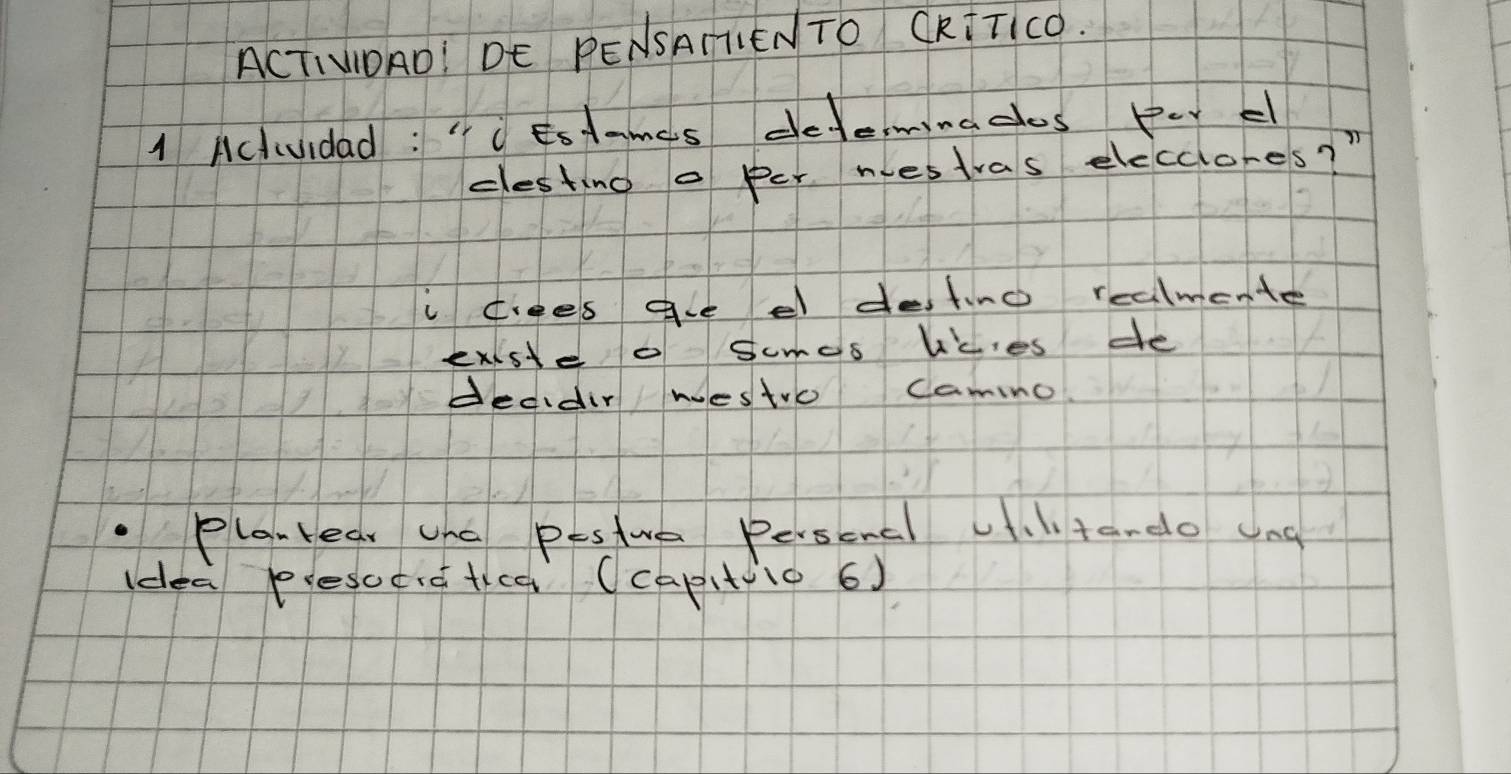 ACTIVIDAD: DE PENSAMIENTO CRÍTICO.
1 Actividad: "¿Estamos determinados por el
destino o por nuestras elecciones?"
¿ Crees que el destino realmente
existe o somos libres de
decidir nuestro camino
• Plantear una postura Personal utilizando una
idea presocrática (capítulo 6)